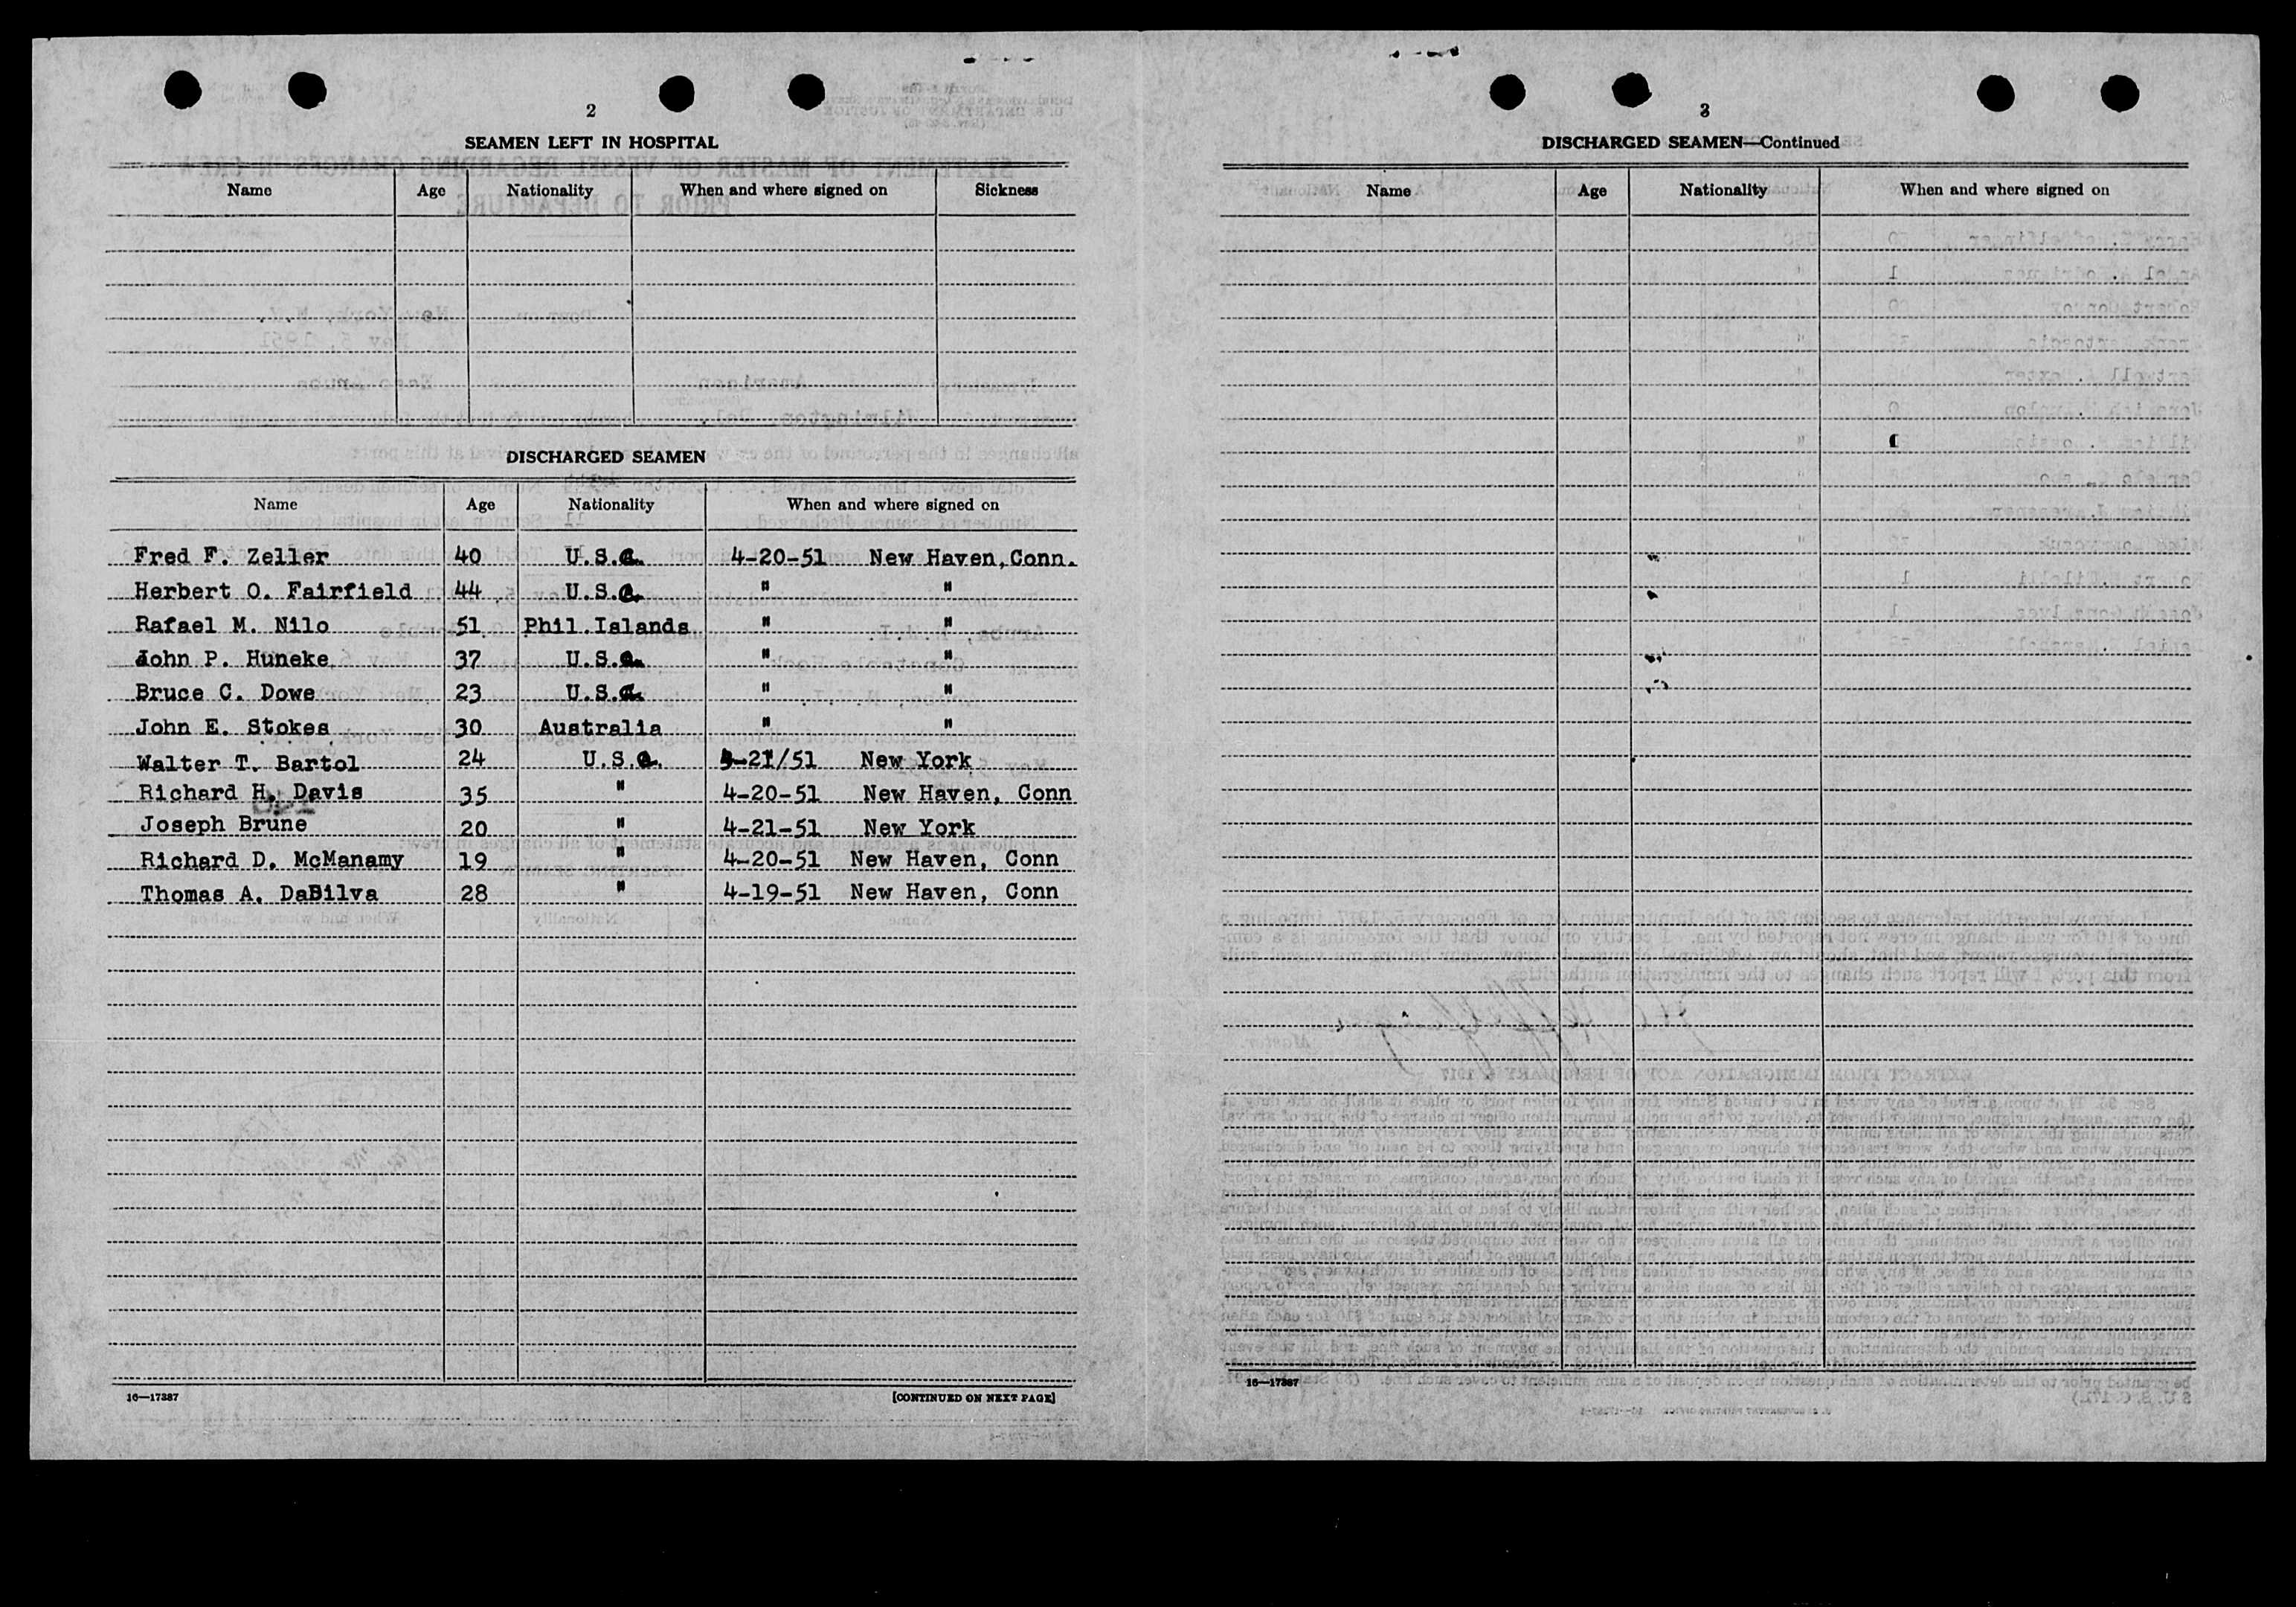 2
SEAMEN LEFT IN HOSPITAL
Name Age Nationality When and where signed on Sickness
DISCHARGED SEAMEN
Name Age Nationality When and where signed on
Fred F. Zeller 40 U.S.a. 4-20-51 New Haven, Conn.
Herbert O. Fairfield 44 U.S.a. " "
Rafael M. Nilo 51 Phil.Islands " "
John P. Huneke 37 U.S.a. " "
Bruce C. Dowe 23 U.S.a. " "
John E. Stokes 30 Australia " "
Walter T. Bartol 24 U.S.a. 4-21/51 New York
Richard H. Davis 35 " 4-20-51 New Haven, Conn
Joseph Brune 20 " 4-21-51 New York
Richard D. McManamy 19 " 4-20-51 New Haven, Conn
Thomas A. DaSilva 28 " 4-19-51 New Haven, Conn
16—17387 [CONTINUED ON NEXT PAGE]
3
DISCHARGED SEAMEN—Continued
Name Age Nationality When and where signed on
16—17387